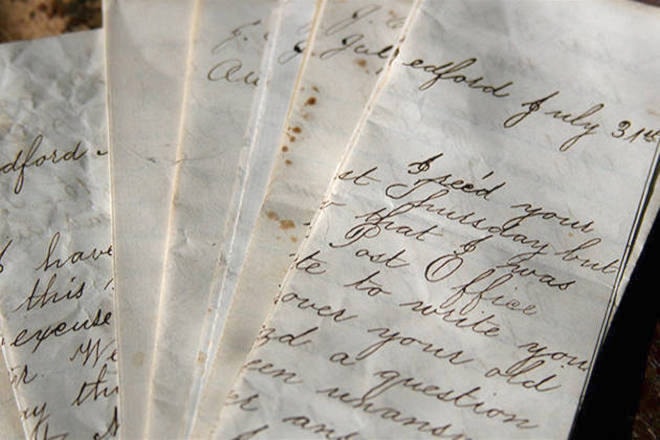 dford
I have
this
excuse
r. We
y thi
J.
Au
J. Jul
edford July 31st
I rec'd your
st Thursday but
that I was
Post Office
te to write you
over your old
zd a question
een unansw
er an